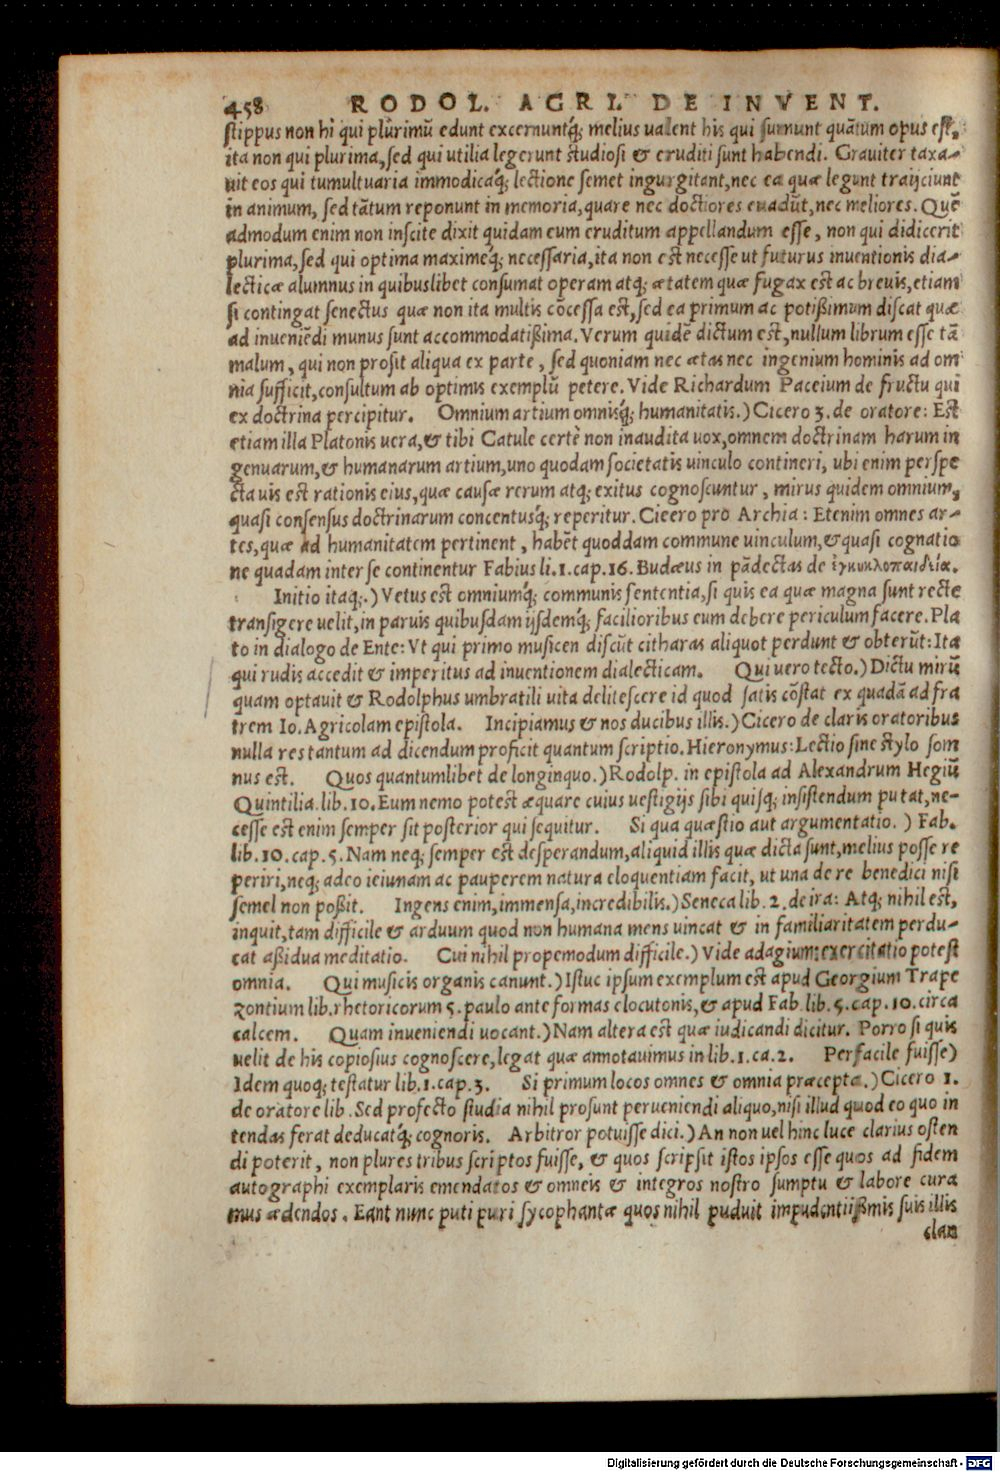 458 RODOL. AGRI. DE INVENT.
ſtippus non hi qui plurimũ edunt excernuntq́; melius ualent his qui ſumunt quãtum opus eſt,
ita non qui plurima, ſed qui utilia legerunt ſtudioſi & eruditi ſunt habendi. Grauiter taxa-
uit eos qui tumultuaria immodicaq́; lectione ſemet ingurgitant, nec ea quæ legunt traijciunt
in animum, ſed tãtum reponunt in memoria, quare nec doctiores euadũt, nec meliores. Quẽ
admodum enim non inſcite dixit quidam eum eruditum appellandum eſſe, non qui didicerit
plurima, ſed qui optima maximeq́; neceſſaria, ita non eſt neceſſe ut futurus inuentionis dia-
lecticæ alumnus in quibuslibet conſumat operam atq; ætatem quæ fugax eſt ac breuis, etiam
ſi contingat ſenectus quæ non ita multis cõceſſa eſt, ſed ea primum ac potißimum diſcat quæ
ad inueniẽdi munus ſunt accommodatißima. Verum quidẽ dictum eſt, nullum librum eſſe tã
malum, qui non proſit aliqua ex parte, ſed quoniam nec ætas nec ingenium hominis ad om
nia ſufficit, conſultum ab optimis exemplũ petere. Vide Richardum Paceium de fructu qui
ex doctrina percipitur. Omnium artium omnisq́; humanitatis.) Cicero 3. de oratore: Eſt
etiam illa Platonis uera, & tibi Catule certè non inaudita uox, omnem doctrinam harum in
genuarum, & humanarum artium, uno quodam ſocietatis uinculo contineri, ubi enim perſpe
cta uis eſt rationis eius, quæ cauſæ rerum atq; exitus cognoſcuntur, mirus quidem omnium,
quaſi conſenſus doctrinarum concentusq́; reperitur. Cicero pro Archia: Etenim omnes ar-
tes, quæ ad humanitatem pertinent, habẽt quoddam commune uinculum, & quaſi cognatio
ne quadam inter ſe continentur Fabius li. 1. cap. 16. Budæus in pãdectas de ἐγκυκλοπαιδείᾳ.
Initio itaq;.) Vetus eſt omniumq́; communis ſententia, ſi quis ea quæ magna ſunt recte
tranſigere uelit, in paruis quibuſdam ijſdemq́; facilioribus eum debere periculum facere. Pla
to in dialogo de Ente: Vt qui primo muſicen diſcũt citharas aliquot perdunt & obterũt: Ita
qui rudis accedit & imperitus ad inuentionem dialecticam. Qui uero tecto.) Dictu mirũ
quam optauit & Rodolphus umbratili uita deliteſcere id quod ſatis cõſtat ex quadã ad fra
trem Io. Agricolam epiſtola. Incipiamus & nos ducibus illis.) Cicero de claris oratoribus
nulla res tantum ad dicendum proficit quantum ſcriptio. Hieronymus: Lectio ſine ſtylo ſom
nus eſt. Quos quantumlibet de longinquo.) Rodolp. in epiſtola ad Alexandrum Hegiũ
Quintilia. lib. 10. Eum nemo poteſt æquare cuius ueſtigijs ſibi quiſq; inſiſtendum putat, ne-
ceſſe eſt enim ſemper ſit poſterior qui ſequitur. Si qua quæſtio aut argumentatio.) Fab.
lib. 10. cap. 5. Nam neq; ſemper eſt deſperandum, aliquid illis quæ dicta ſunt, melius poſſe re
periri, neq; adeo ieiunam ac pauperem natura eloquentiam facit, ut una de re benedici niſi
ſemel non poßit. Ingens enim, immenſa, incredibilis.) Seneca lib. 2. de ira: Atq; nihil eſt,
inquit, tam difficile & arduum quod non humana mens uincat & in familiaritatem perdu-
cat aßidua meditatio. Cui nihil propemodum difficile.) Vide adagium: exercitatio poteſt
omnia. Qui muſicis organis canunt.) Iſtuc ipſum exemplum eſt apud Georgium Trape
zontium lib. rhetoricorum 5. paulo ante formas elocutonis, & apud Fab. lib. 5. cap. 10. circa
calcem. Quam inueniendi uocant.) Nam altera eſt quæ iudicandi dicitur. Porro ſi quis
uelit de his copioſius cognoſcere, legat quæ annotauimus in lib. 1. ca. 2. Perfacile fuiſſe)
Idem quoq; teſtatur lib. 1. cap. 3. Si primum locos omnes & omnia præcepta.) Cicero 1.
de oratore lib. Sed profecto ſtudia nihil proſunt perueniendi aliquo, niſi illud quod eo quo in
tendas ferat deducatq́; cognoris. Arbitror potuiſſe dici.) An non uel hinc luce clarius oſten
di poterit, non plures tribus ſcriptos fuiſſe, & quos ſcripſit iſtos ipſos eſſe quos ad fidem
autographi exemplaris emendatos & omneis & integros noſtro ſumptu & labore cura
mus ædendos. Eant nunc puti puri ſycophantæ quos nihil puduit impudentiißmis ſuis illis
clan
Digitalisierung gefördert durch die Deutsche Forschungsgemeinschaft - DFG